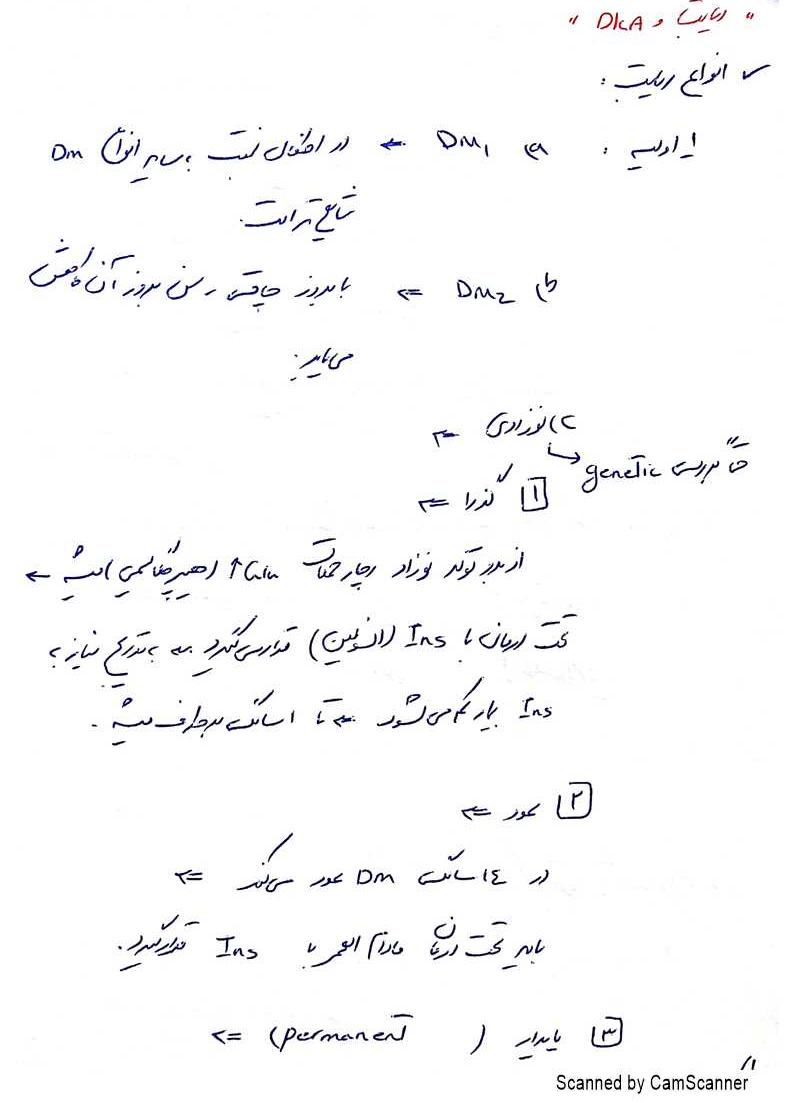 "دیابت و DKA"
✓ انواع دیابت:
1_ اولیه: a) DM1 ← در اطفال نسبت به سایر انواع DM
شایع تر است.
b) DM2 ⇐ با بروز چاقی، سن بروز آن کاهش
می‌یابد.
۲) نوزادی ⇐
حتماً بررسی genetic
[۱] گذرا ⇐
از بدو تولد نوزاد دچار حملات ↑Glu (هیپرگلایسمی) میشه ←
تحت درمان با Ins (انسولین) قرار می‌گیرد به تدریج نیاز به
Ins کم می‌شود ⇐ تا سالگی برطرف میشه.
[۲] عود ⇐
در ۱۴ سالگی DM عود می‌کند ⇐
باید تحت درمان مادام العمر با Ins قرار گیرد.
[۳] پایدار (permanent) ⇐
/1
Scanned by CamScanner